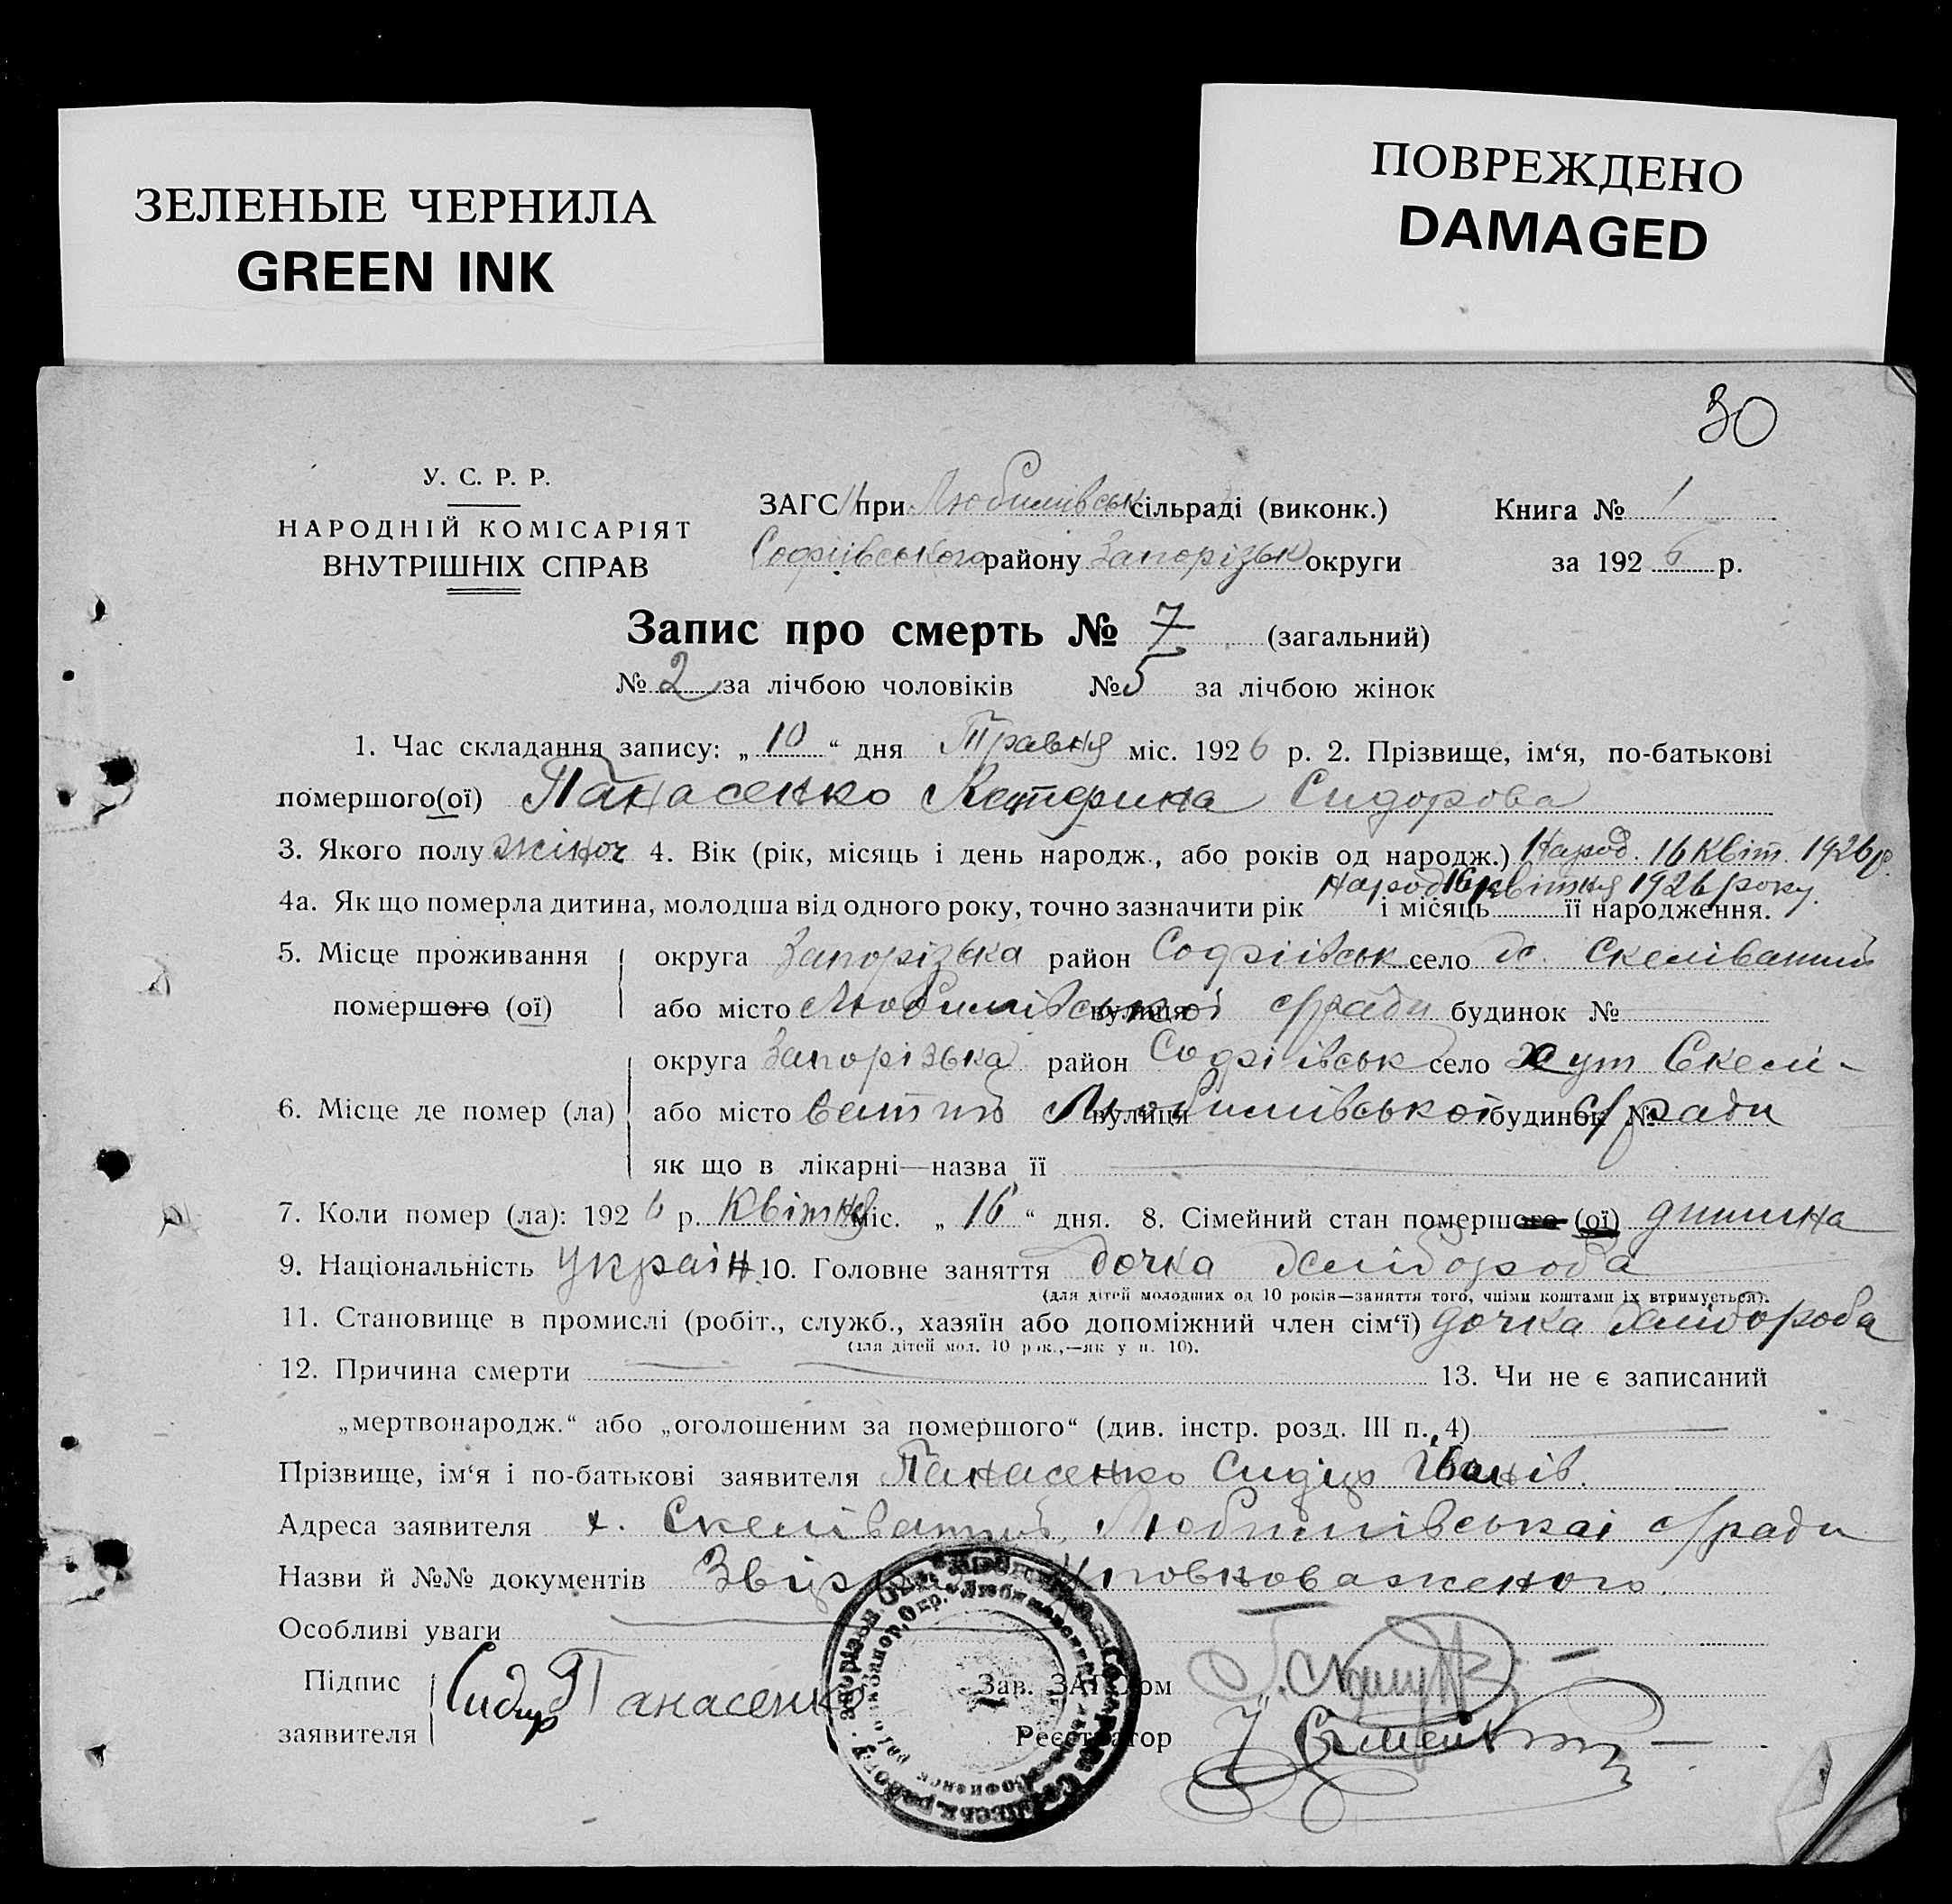 ЗЕЛЕНЫЕ ЧЕРНИЛА
GREEN INK
ПОВРЕЖДЕНО
DAMAGED
30
У. С. Р. Р.
НАРОДНІЙ КОМІСАРІЯТ
ВНУТРІШНІХ СПРАВ
ЗАГС при Любимівськ сільраді (виконк.)
Софіївського району Запорізьк округи
Книга № 1
за 1926 р.
Запис про смерть № 7 (загальний)
№ 2 за лічбою чоловіків № 5 за лічбою жінок
1. Час складання запису: „10“ дня Травня міс. 1926 р. 2. Прізвище, ім‘я, по-батькові
помершого(ої) Панасенко Катерина Сидорова
3. Якого полу жіноч 4. Вік (рік, місяць і день народж., або років од народж.) Народ. 16 Квіт. 1926 р.
народ 16 квітня 1926 року.
4а. Як що померла дитина, молодша від одного року, точно зазначити рік і місяць її народження.
5. Місце проживання помершого (ої)
округа Запорізька район Софіївськ село х. Скеліватий
або місто Любимівської вулиця с/ради будинок №
6. Місце де помер (ла)
округа Запорізька район Софіївськ село хут Скелі-
або місто ватий вулиця Любимівської будинок № с/ради
як що в лікарні—назва її
7. Коли помер (ла): 1926 р. Квітня міс. „16“ дня. 8. Сімейний стан помершого (ої) дитина
9. Національність Україн 10. Головне заняття дочка хлібороба
(для дітей молодших од 10 років—заняття того, чиїми коштами їх втримується).
11. Становище в промислі (робіт., служб., хазяїн або допоміжний член сім‘ї) дочка хлібороба
(для дітей мол. 10 рок.,—як у п. 10).
12. Причина смерти 13. Чи не є записаний
„мертвонародж.“ або „оголошеним за помершого“ (див. інстр. розд. III п. 4)
Прізвище, ім‘я і по-батькові заявителя Панасенко Сидір Іванів.
Адреса заявителя х. Скеліватий Любимівської с/ради
Назви й №№ документів Уповноваженого.
Особливі уваги
Підпис заявителя Сидир Панасенко
Зав. ЗАГСом
Реєстратор